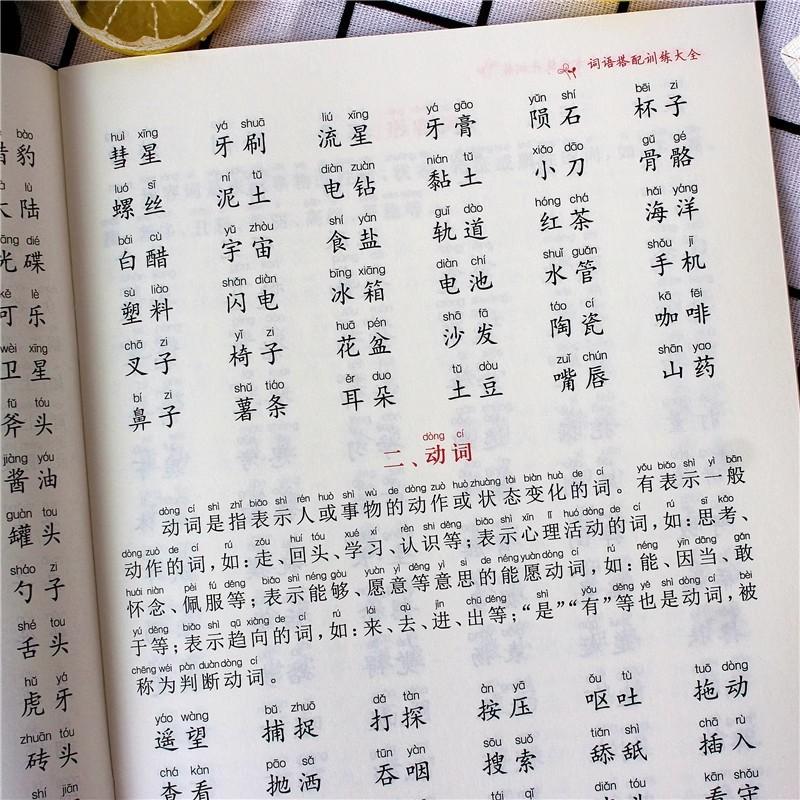 bào
豹
lù
大陆
dié
光碟
kě lè
可乐
wèi xīng
卫星
fǔ tóu
斧头
jiàng yóu
酱油
guàn tou
罐头
sháo zi
勺子
shé tou
舌头
hǔ yá
虎牙
zhuān tóu
砖头
shí jiān
词语搭配训练大全
huì xīng yá shuā liú xīng yá gāo yǔn shí bēi zi
彗星 牙刷 流星 牙膏 陨石 杯子
luó sī ní tǔ diàn zuàn nián tǔ xiǎo dāo gǔ gé
螺丝 泥土 电钻 黏土 小刀 骨骼
bái cù yǔ zhòu shí yán guǐ dào hóng chá hǎi yáng
白醋 宇宙 食盐 轨道 红茶 海洋
sù liào shǎn diàn bīng xiāng diàn chí shuǐ guǎn shǒu jī
塑料 闪电 冰箱 电池 水管 手机
chā zi yǐ zi huā pén shā fā táo cí kā fēi
叉子 椅子 花盆 沙发 陶瓷 咖啡
bí zi shǔ tiáo ěr duo tǔ dòu zuǐ chún shān yao
鼻子 薯条 耳朵 土豆 嘴唇 山药
dòng cí
二、动词
dòng cí shì zhǐ biǎo shì rén huò shì wù de dòng zuò huò zhuàng tài biàn huà de cí yǒu biǎo shì yì bān
动词是指表示人或事物的动作或状态变化的词。有表示一般
dòng zuò de cí rú zǒu huí tóu xué xí rèn shi děng biǎo shì xīn lǐ huó dòng de cí rú sī kǎo
动作的词，如：走、回头、学习、认识等；表示心理活动的词，如：思考、
huái niàn pèi fú děng biǎo shì néng gòu yuàn yì děng yì si de néng yuàn dòng cí rú néng yīn dāng gǎn
怀念、佩服等；表示能够、愿意等意思的能愿动词，如：能、因当、敢
yú děng biǎo shì qū xiàng de cí rú lái qù jìn chū děng shì yǒu děng yě shì dòng cí bèi
于等；表示趋向的词，如：来、去、进、出等；“是”“有”等也是动词，被
chēng wéi pàn duàn dòng cí
称为判断动词。
yáo wàng bǔ zhuō dǎ tàn àn yā ǒu tù tuō dòng
遥望 捕捉 打探 按压 呕吐 拖动
chá kàn pāo sǎ tūn yàn sōu suǒ tiǎn shì chā rù
查看 抛洒 吞咽 搜索 舔舐 插入
tái qǐ diǎn tóu kān shǒu
看守